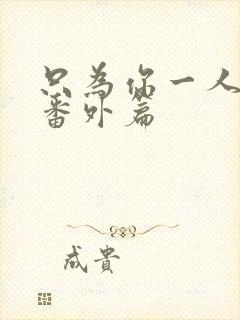 只為你一人
番外篇
成貴